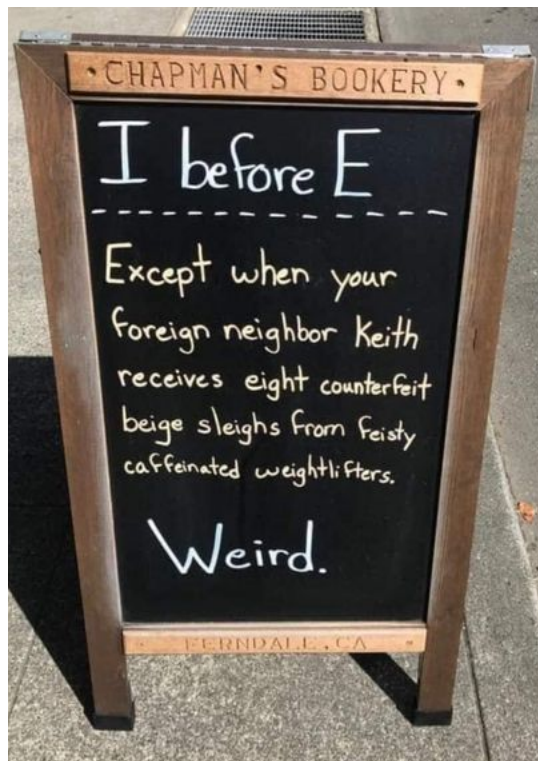 • CHAPMAN'S BOOKERY •
I before E
Except when your
foreign neighbor Keith
receives eight counterfeit
beige sleighs from feisty
caffeinated weightlifters.
Weird.
• FERNDALE, CA •